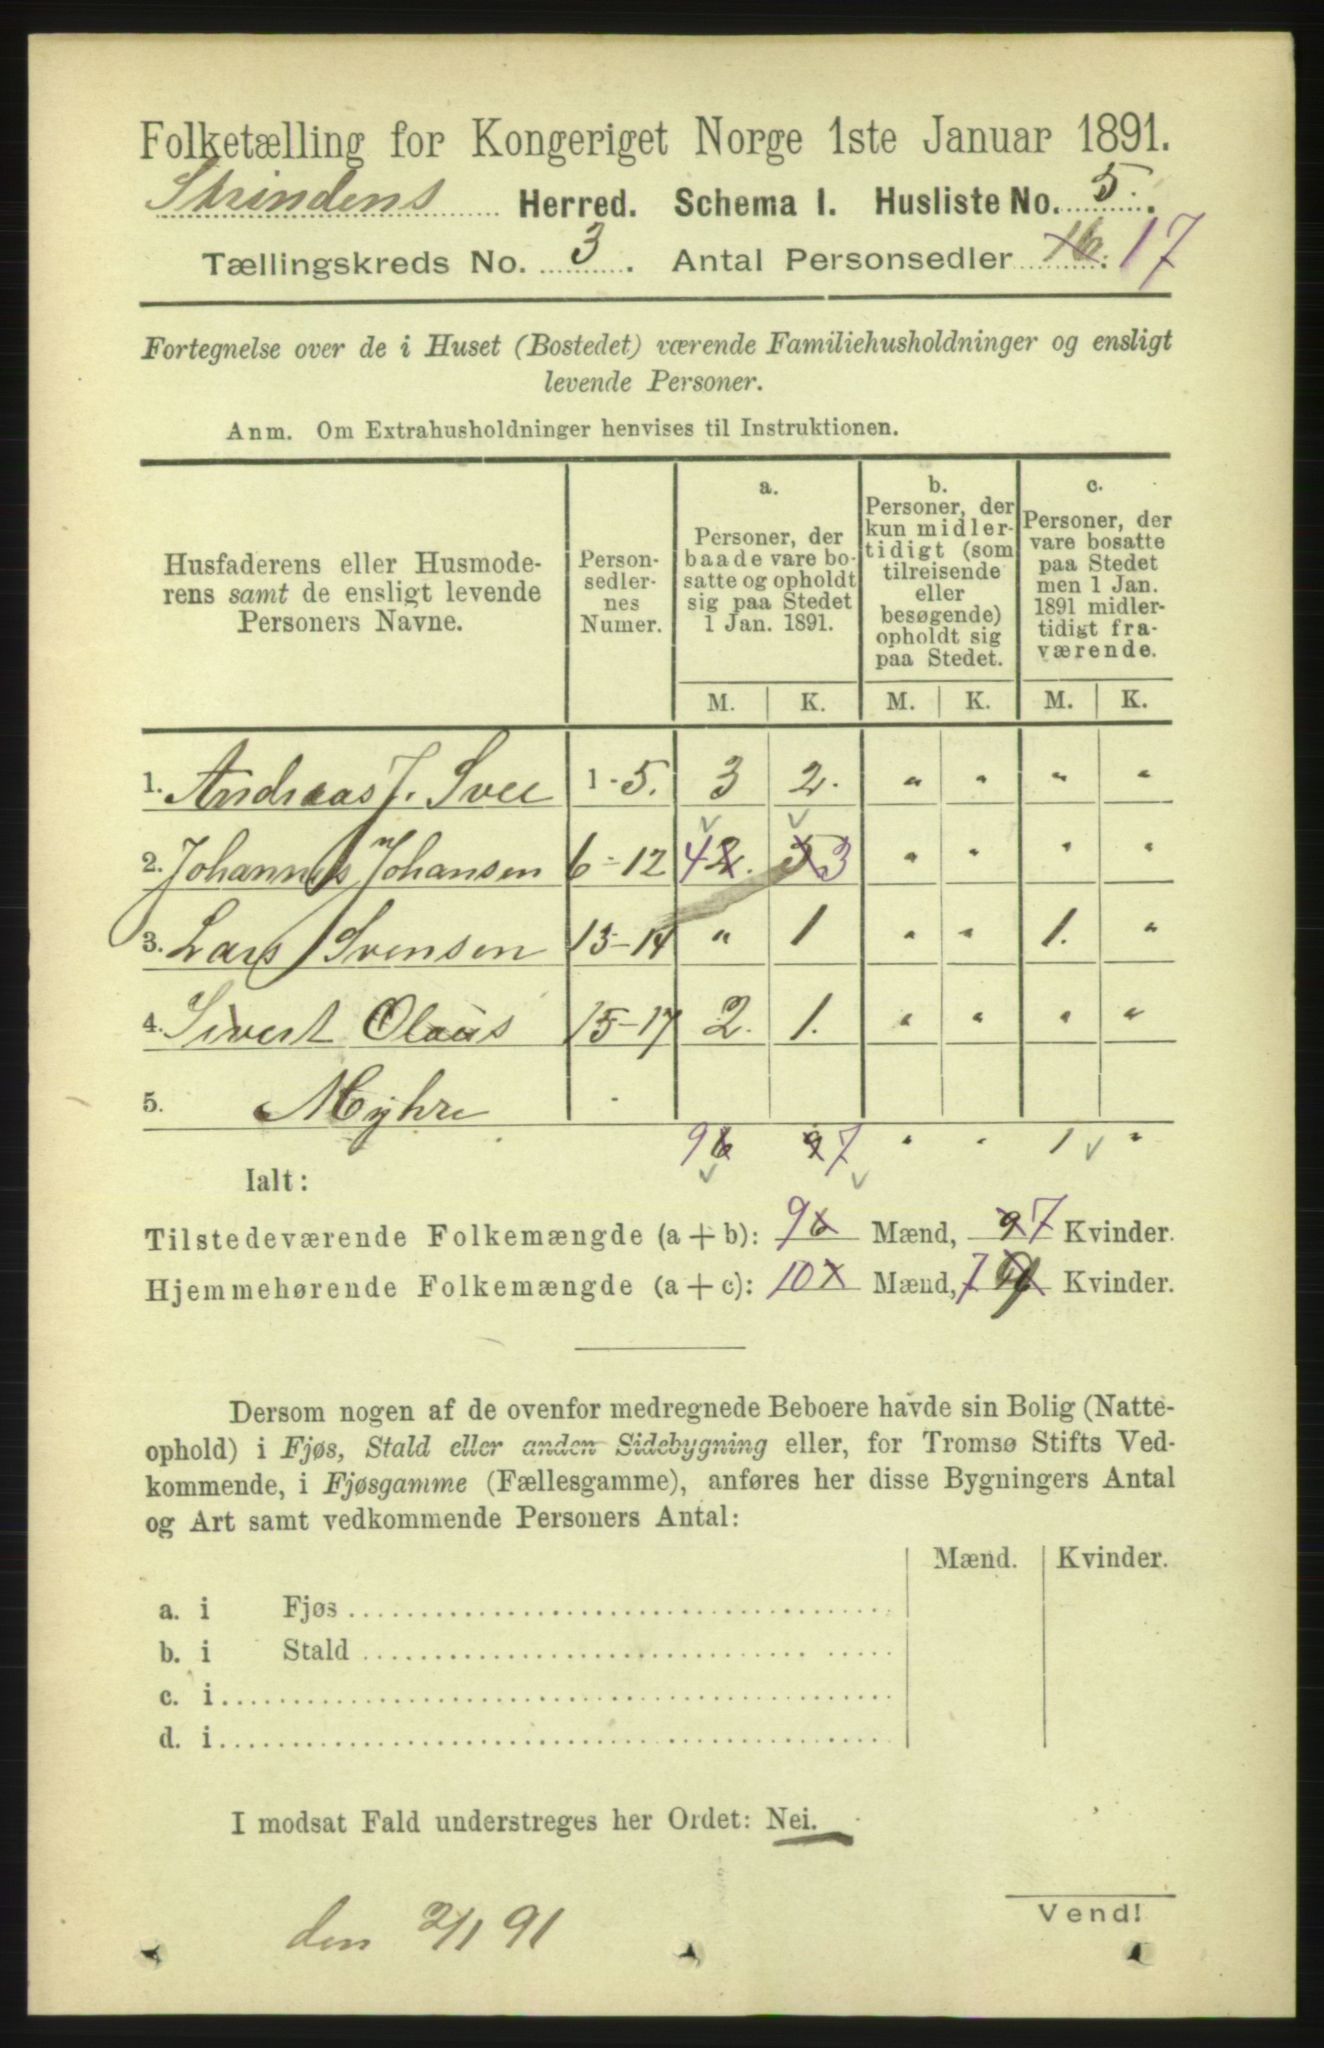 Folketælling for Kongeriget Norge 1ste Januar 1891.
Strindens Herred. Schema I. Husliste No. 5.
Tællingskreds No. 3. Antal Personsedler 16. 17
Fortegnelse over de i Huset (Bostedet) værende Familiehusholdninger og ensligt
levende Personer.
Anm. Om Extrahusholdninger henvises til Instruktionen.
Husfaderens eller Husmode-
rens samt de ensligt levende
Personers Navne.
Person-
sedler-
nes
Numer.
a.
Personer, der
baade vare bo-
satte og opholdt
sig paa Stedet
1 Jan. 1891.
b.
Personer, der
kun midler-
tidigt (som
tilreisende
eller
besøgende)
opholdt sig
paa Stedet.
c.
Personer, der
vare bosatte
paa Stedet
men 1 Jan.
1891 midler-
tidigt fra-
værende.
M. K. M. K. M. K.
1. Andreas J. Svee 1-5. 3 2. " " " "
2. Johannes Johansen 6-12 4 2. 5 3 " " " "
3. Lars Svensen 13-14 " 1 " " 1. "
4. Sivert Olaus 15-17 2. 1. " " " "
5. Myhre
9 6 9 7 " " 1 "
Ialt:
Tilstedeværende Folkemængde (a + b): 9 6 Mænd, 9 7 Kvinder.
Hjemmehørende Folkemængde (a + c): 10 Mænd, 7 9 Kvinder.
Dersom nogen af de ovenfor medregnede Beboere havde sin Bolig (Natte-
ophold) i Fjøs, Stald eller anden Sidebygning eller, for Tromsø Stifts Ved-
kommende, i Fjøsgamme (Fællesgamme), anføres her disse Bygningers Antal
og Art samt vedkommende Personers Antal:
Mænd. Kvinder.
a. i Fjøs
b. i Stald
c. i
d. i
I modsat Fald understreges her Ordet: Nei.
den 2/1 91
Vend!